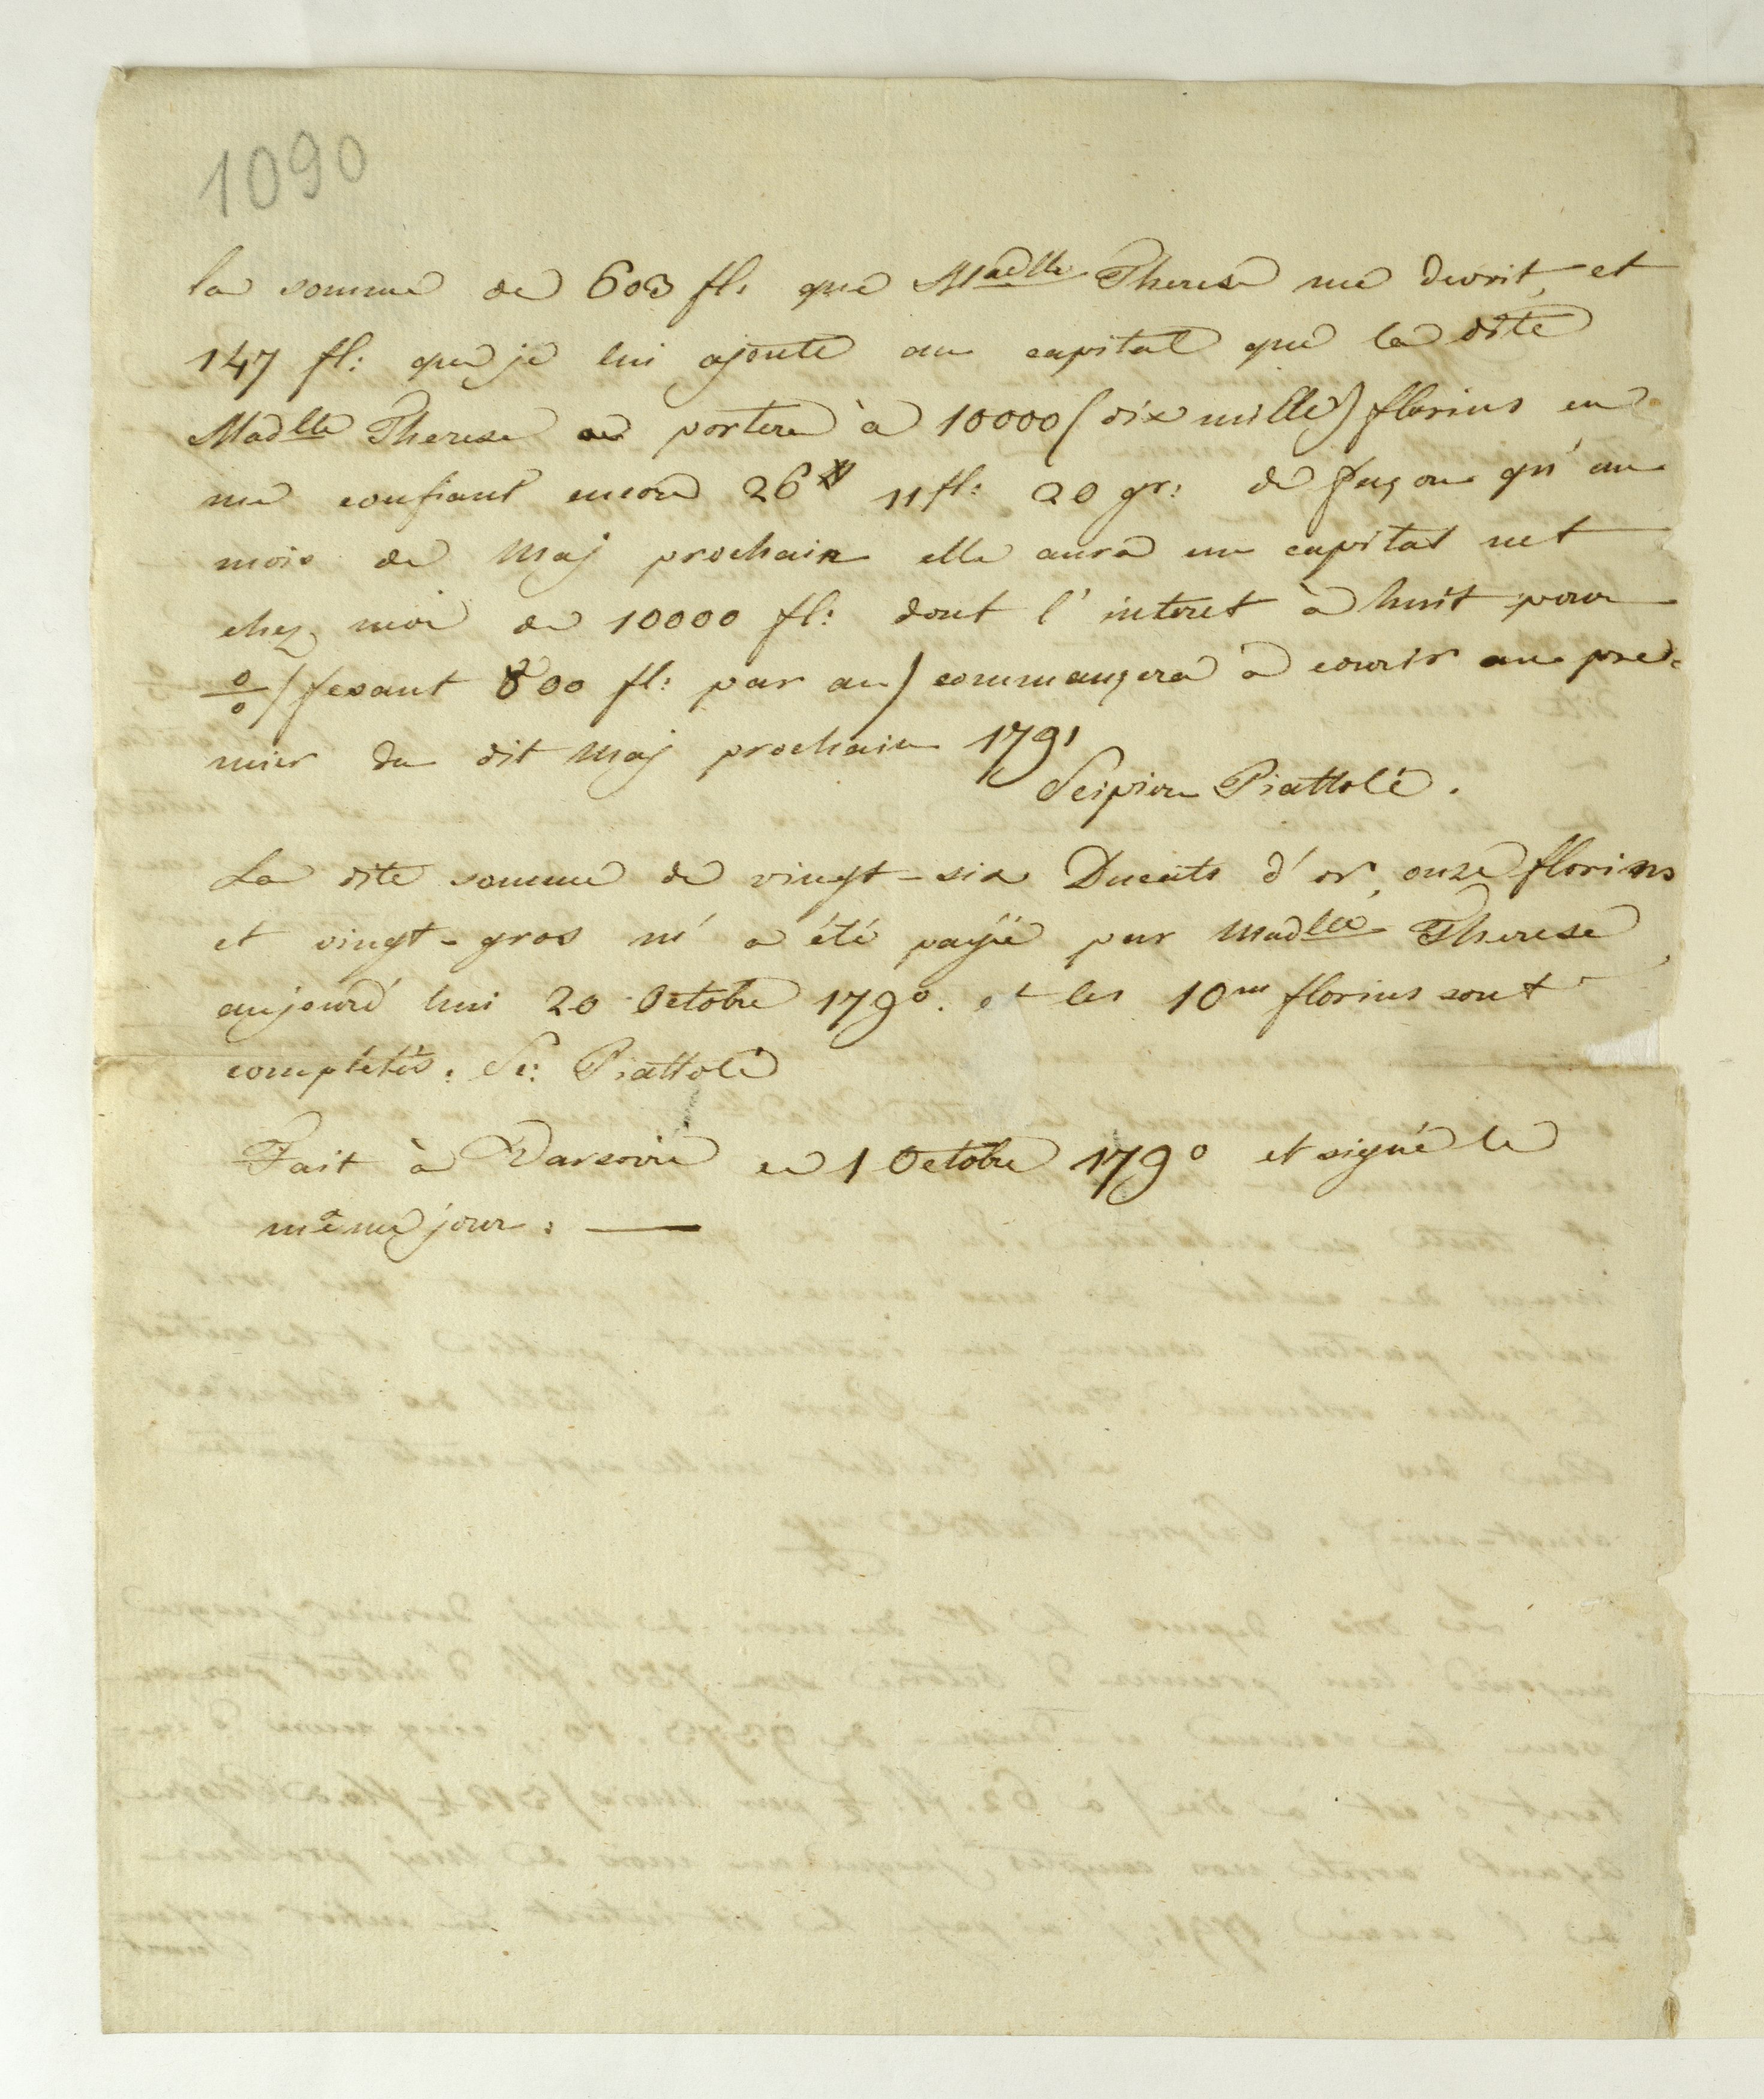 1090
la somme de 603 fl: que Madlle Therese me devoit, et
147 fl: que je lui ajoute au capital que la dite
Madlle Therese portera à 10000 (dix mille) florins en
me confiant encore 26 # 11 fl: 20 gr: de façon qu'au
mois de Maj prochain elle aura un capital net
chez moi de 10000 fl: dont l'interet à huit pour
%/ fesant 800 fl: par an/ commançera à courir au pre-
mier du dit Maj prochain 1791
Scipion Piattoli.
La dite somme de vingt-six Ducats d'or, onze florins
et vingt-gros m'a été payée par Madlle Therese
aujourd'hui 20 Octobre 1790. et les 10m florins sont
completés. Sc: Piattoli
Fait à Varsovie ce 1 Octobre 1790 et signé le
même jour: —